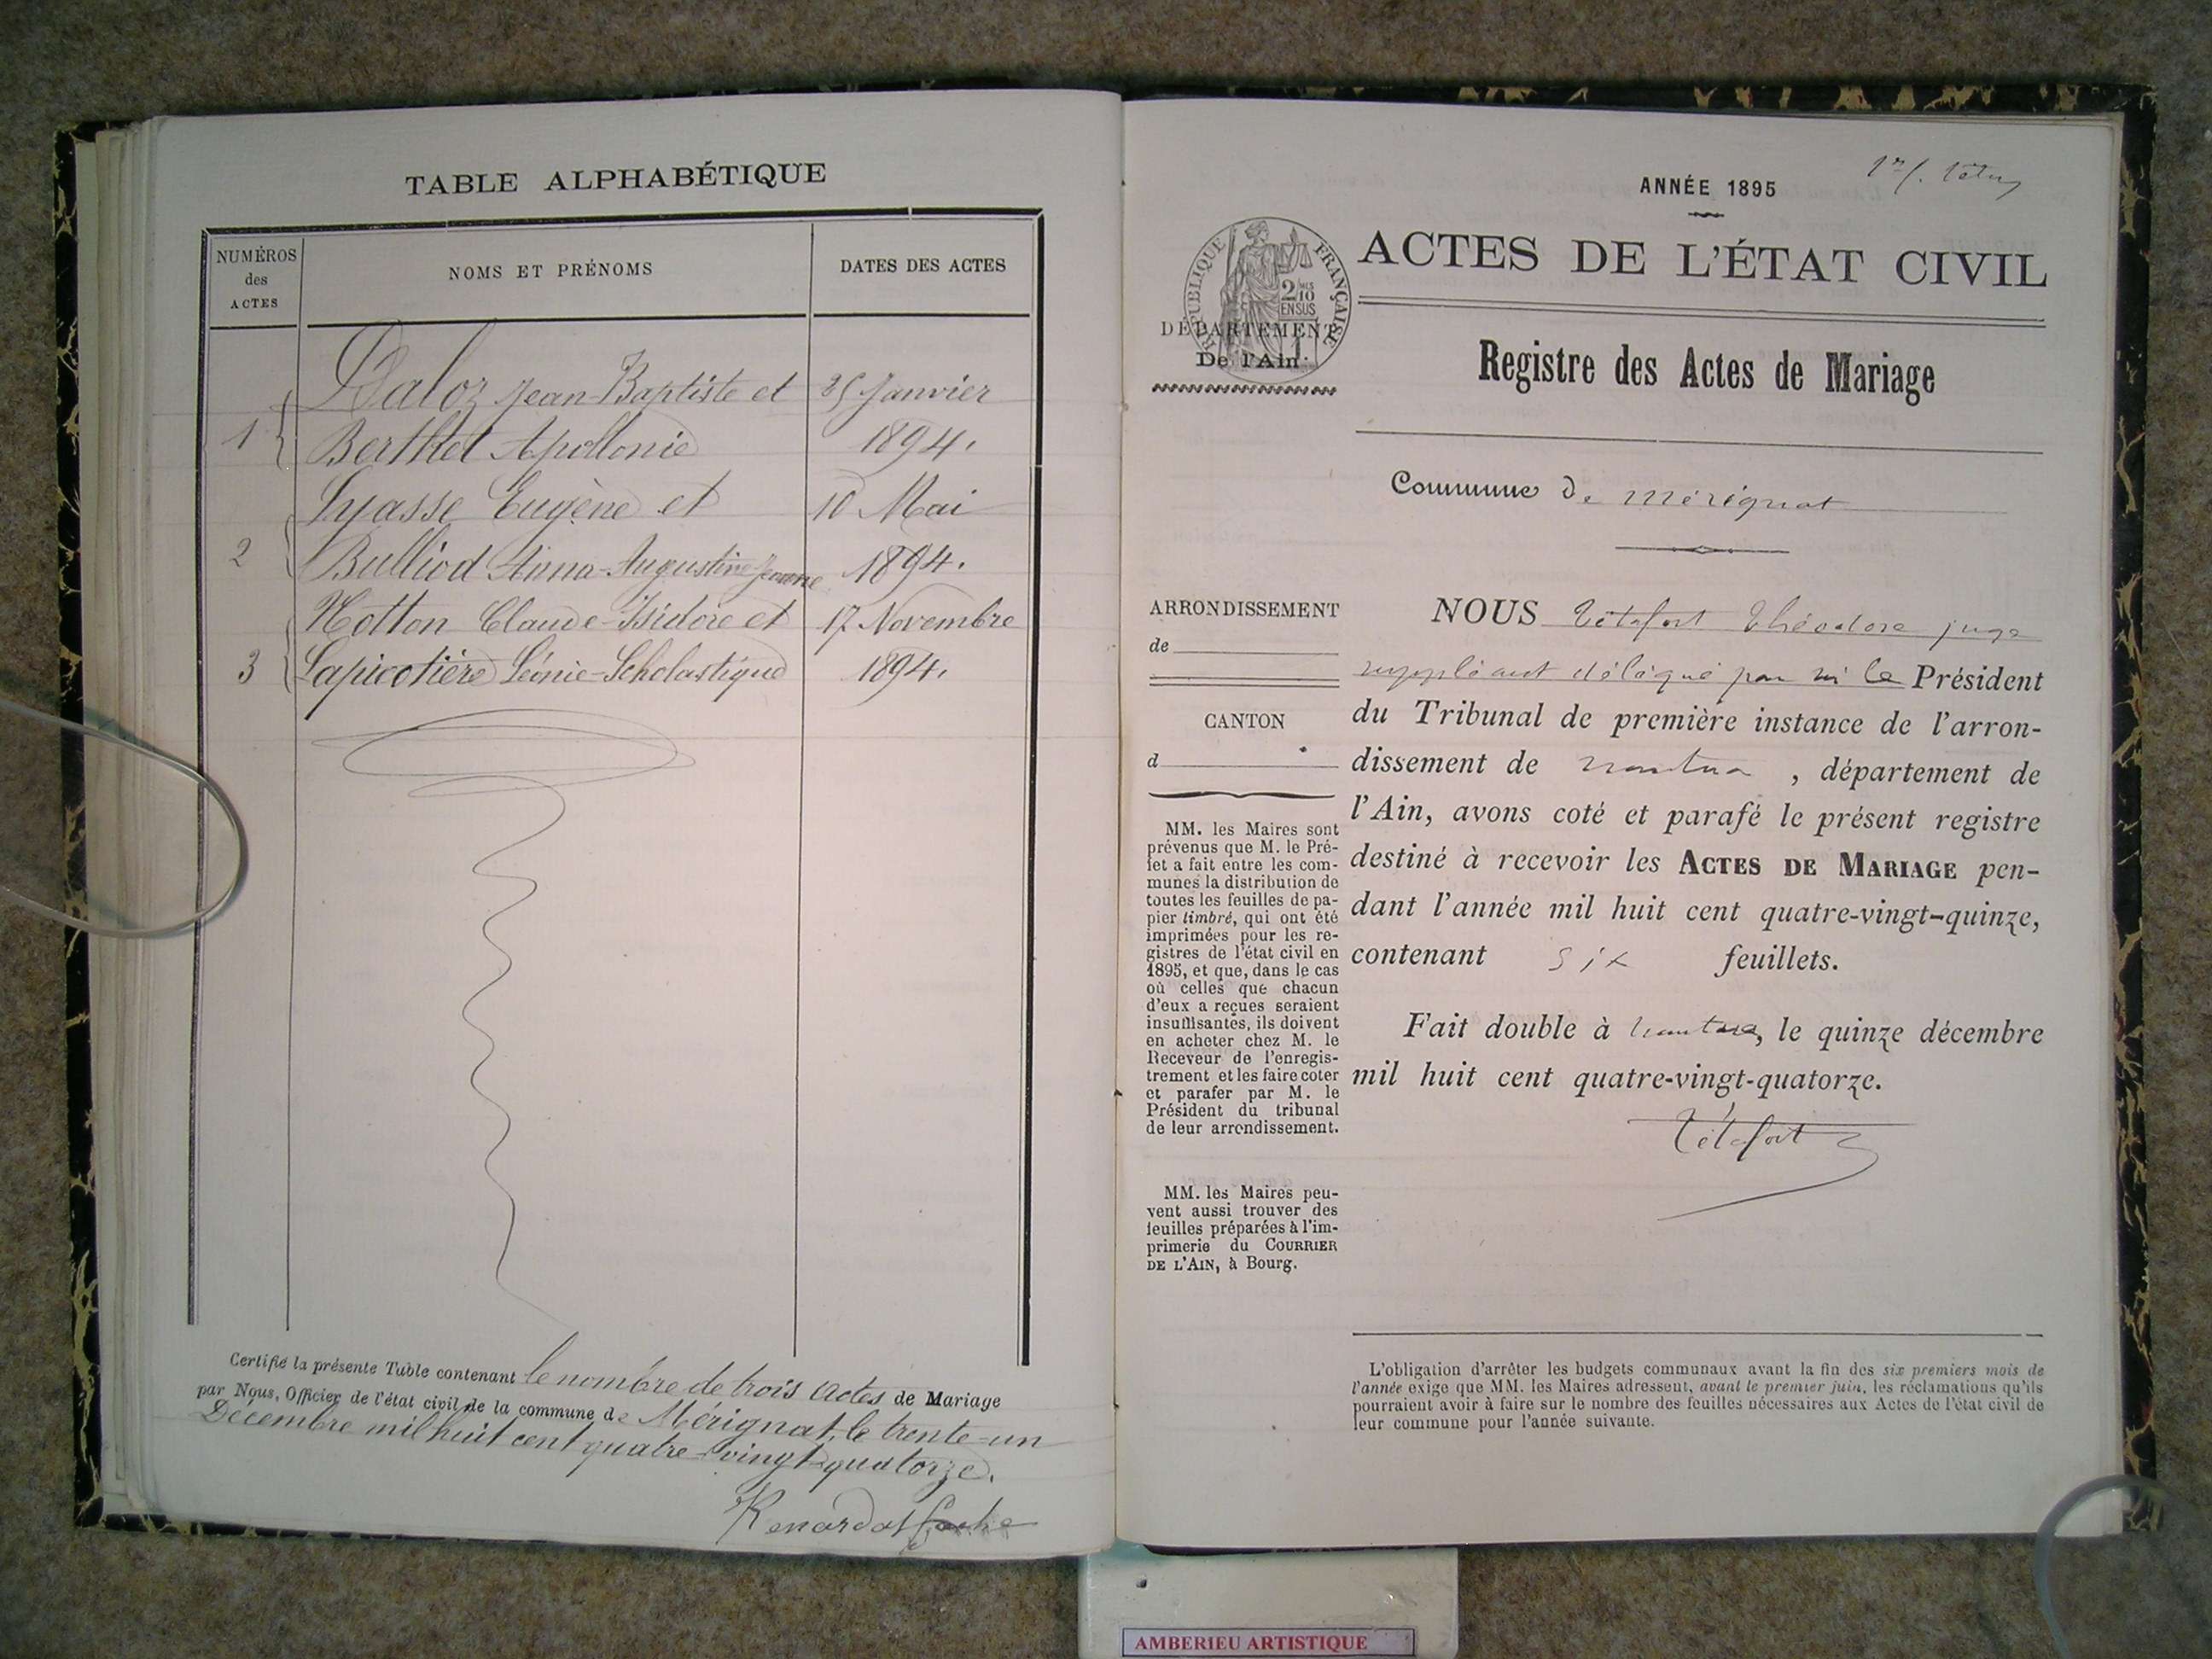 TABLE ALPHABÉTIQUE
NUMÉROS
des
ACTES
NOMS ET PRÉNOMS
DATES DES ACTES
Daloz Jean-Baptiste et 25 Janvier
1 Berthet Apollonie 1894.
Lyasse Eugène et 10 Mai
2 Bulliod Anna-Augustine Jeanne 1894.
Notton Claude-Isidore et 17 Novembre
3 Lapicotière Léonie-Scholastique 1894.
Certifié la présente Table contenant le nombre de trois actes de Mariage
par Nous, Officier de l'état civil de la commune de Mérignat, le trente-un
Décembre mil huit cent quatre-vingt-quatorze.
Renardat
ANNÉE 1895
ACTES DE L'ÉTAT CIVIL
RÉPUBLIQUE FRANÇAISE
2/10
EN SUS
DÉPARTEMENT
De l'Ain
Registre des Actes de Mariage
Commune de mérignat
ARRONDISSEMENT
de
CANTON
d
MM. les Maires sont
prévenus que M. le Pré-
fet a fait entre les com-
munes la distribution de
toutes les feuilles de pa-
pier timbré, qui ont été
imprimées pour les re-
gistres de l'état civil en
1895, et que, dans le cas
où celles que chacun
d'eux a reçues seraient
insuffisantes, ils doivent
en acheter chez M. le
Receveur de l'enregis-
trement et les faire coter
et parafer par M. le
Président du tribunal
de leur arrondissement.
MM. les Maires peu-
vent aussi trouver des
feuilles préparées à l'im-
primerie du COURRIER
DE L'AIN, à Bourg.
NOUS Tétafort Théodore juge
suppléant délégué par le Président
du Tribunal de première instance de l'arron-
dissement de nantua, département de
l'Ain, avons coté et parafé le présent registre
destiné à recevoir les ACTES DE MARIAGE pen-
dant l'année mil huit cent quatre-vingt-quinze,
contenant six feuillets.
Fait double à nantua, le quinze décembre
mil huit cent quatre-vingt-quatorze.
Tétafort
L'obligation d'arrêter les budgets communaux avant la fin des six premiers mois de
l'année exige que MM. les Maires adressent, avant le premier juin, les réclamations qu'ils
pourraient avoir à faire sur le nombre des feuilles nécessaires aux Actes de l'état civil de
leur commune pour l'année suivante.
AMBERIEU ARTISTIQUE